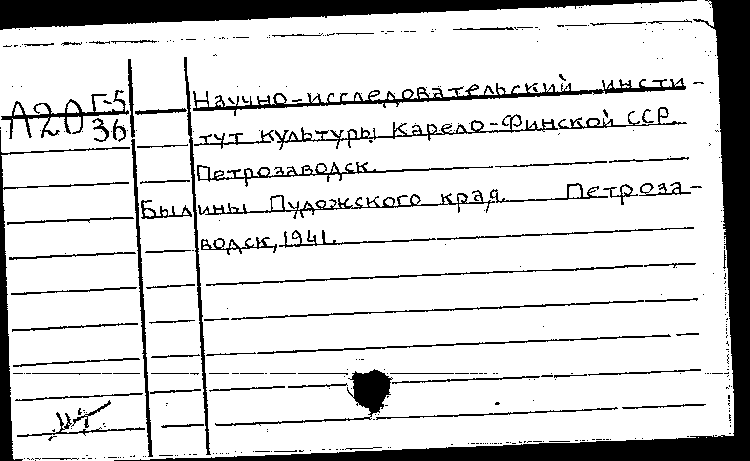 А20 Г-5
36
Научно-исследовательский инсти-
тут культуры Карело-Финской ССР.
Петрозаводск.
Былины Пудожского края. Петроза-
водск, 1941.